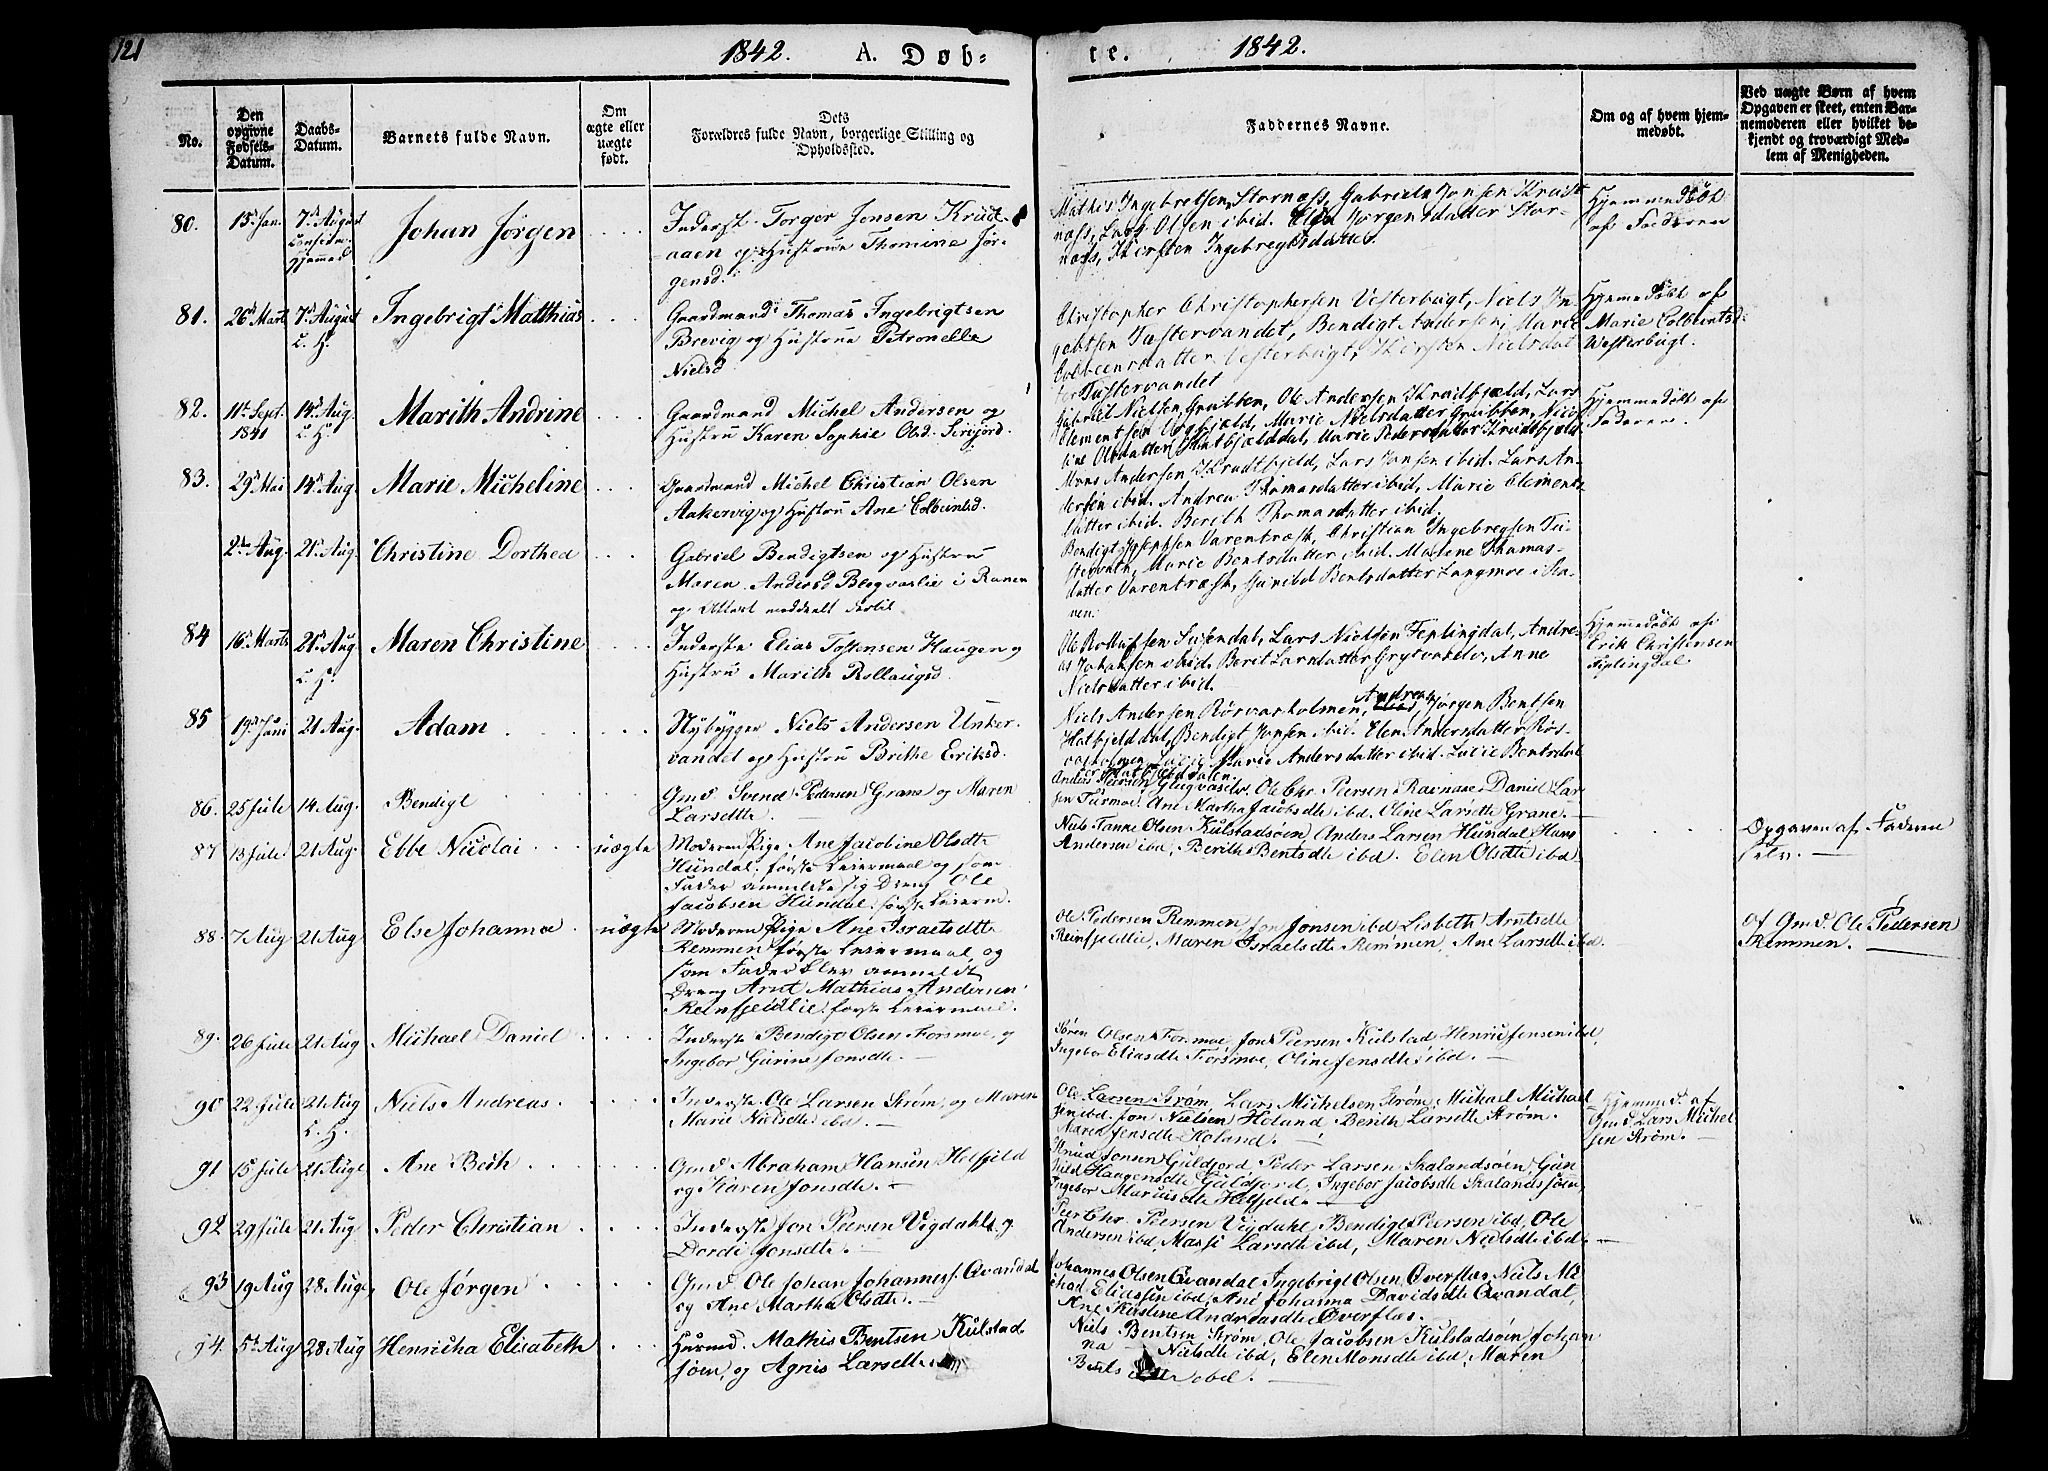 121
1842. A. Døb-
te. 1842.
No.
Den opgivne Fødsels-Datum.
Daabs-Datum.
Barnets fulde Navn.
Om ægte eller uægte født.
Dets Forældres fulde Navn, borgerlige Stilling og Opholdssted.
Faddernes Navne.
Om og af hvem hjemmedøbt.
Ved uægte Børn af hvem Opgaven er skeet, enten Barnemoderen eller hvilket bekjendt og troværdigt Medlem af Menigheden.
80. 15 Jan. 7 August Johan Jørgen
Inderst Torger Jonsen Krud-
aaen og Hustrue Thomine Jør-
gensd.
Mathis Ingebretsen Stornæss, Gabriel Jonsen
næss, Lars Olsen ibid. Elen Jørgensdatter Stor-
næss, Kirsten Ingebregtsdatter.
Hjemmedøbt
af Faderen
81. 26 Marts 7 August C. H. Ingebrigt Matthias
Gaardmand Thomas Ingebrigtsen
Brevig og Hustrue Petronelle
Nielsd
Christopher Christophersen Vesterbugt, Niels In-
gebtsen Tustervandet, Bendigt Andersen, Marie
Colbeensdatter Vesterbugt, Kirsten Nielsdat-
ter Tustervandet
Hjemmedøbt af
Marie Colbeintsd
Westerbugt.
82. 11 Sept. 1841 14 Aug. C. H. Marith Andrine
Gaardmand Michel Andersen og
Hustru Karen Sophie Olsd.
Gabriel Nielsen Grubben, Ole Andersen Kradfjeld, Lars
Clementsen, Marie Nielsdatter Grubben, Nico-
line Olsdatter, Marie Pedersdatter
Hjemmedøbt af
Faderen.
83. 29 Mai 14 Aug. Marie Micheline
Gaardmand Michel Christian Olsen
Aakervig og Hustru Ane Colbeintsd.
Mons Andersen, Lars Jonsen ibid. Lars An-
dersen ibid. Andrea Thomasdatter ibid, Marie Clements-
datter ibid. Berith Thomasdatter ibid.
2 Aug. 21 Aug. Christine Dorthea
Gabriel Bendigtsen og Hustrue
Maren Andersd. i Ranen
og Attest meddeelt dertil
Bendigt Josephsen Varentræsk, Christian Ingebregtsen Tu-
stervatn, Marie Bentsdatter ibid. Malene Thomas-
datter Varentræsk, Gunild Bentsdatter Langmoe i Ra-
nen.
84 16 Marts 21 Aug. C. H. Maren Christine
Inderste Elias Tostensen Haugen og
Hustrü Marith Rollaugsd.
Ole Susendal, Lars Nielsen Feplingdal, Andre-
as Johansen ibid. Berit Larsdatter, Anne
Nielsdatter ibid.
Hjemmedøbt af
Erik Christensen
Fiplingdal
85 19 Juni 21 Aug. Adam
Nybygger Niels Andersen Unker-
vandet og Hustru Brithe Eriksd.
Niels Andersen Rørvasholmen, Andreas Jørgen Bentsen
Hatfjelddal, Bendigt Jonsen ibid. Elen Andersdatter Røs-
vasholmen, Marie Andersdatter ibid. Lucie Bentsdat-
ter Hatfjelddalen.
86. 25 Jule 14 Aug. Bendigt
Gmd. Svend Pedersen Grane og Maren
Larsdtte.
Anders Peersen, Ole Chr. Peersen Ravnaae, Daniel Lar-
sen Turmoe, Ane Martha Jacobsdte ibd. Oline Larsdte Grane.
87 13 Jule 21 Aug. Ebbe Nicolai uægte
Moderen Pige Ane Jacobine Olsdte
Hundal. første Leiermaal og som
Fader anmeldte sig Dreng Ole
Jacobsen Hundal. første Leierm.
Niels Tanne Olsen Kulstadsøen, Anders Larsen Hundal, Hans
Andersen ibd, Berith Bentsdte ibd. Elen Olsdte ibd
Opgaven af Faderen
selv.
88. 7 Aug 21 Aug Else Johanna uægte
Moderen Pige Ane Israelsdtte
Remmen første Leiermaal, og
som Fader blev anmeldt
Dreng Arnt Mathias Andersen
Reinfjeldlie. første Leiermaal.
Ole Pedersen Remmen, Jon Jonsen ibd, Lisbeth Arntsdte
Reinfjeldlie, Maren Israelsdte Remmen, Ane Larsdte ibd.
af Gmd. Ole Pedersen
Remmen.
89. 26 Jule 21 Aug Michael Daniel
Inderste Bendigt Olsen Forsmoe, og
Ingebor Gurine Jonsdte.
Søren Olsen Forsmoe, Jon Peersen Kulstad, Henric Jonsen ibd,
Ingebor Eliasdte Forsmoe, Oline Jensdte ibd.
90 22 Jule 21 Aug C. H. Niels Andreas
Inderste Ole Larsen Strøm, og Maren
Marie Nielsdte ibd.
Ole Larsen Strøm, Lars Michelsen Strøm, Michael Michael-
sen ibd. Jon Nielsen Holand, Berith Larsdte Strøm.
Maren Jensdte Holand.
Hjemmed. af
Gmd. Lars Michel-
sen Strøm.
91 15 Jule 21 Augt Ane Beth
Gmd Abraham Hansen Helfjeld
og Karen Jonsdte.
Knud Jonsen Guldfjord, Peder Larsen Skalandsøen, Gun-
nild Haagensdte Guldfjord, Ingebor Jacobsdte Skalandssøen,
Ingebor Marcusdte Helfjeld.
92 29 Jule 21 Aug Peder Christian
Inderste Jon Peersen Vigdahl og
Dordi Jonsdte.
Peer Chr. Peersen Vigdahl, Bendigt Peersen ibd, Ole
Andersen ibd, Massi Larsdte ibd, Maren Nielsdte ibd.
93 19 Aug 28 Aug Ole Jørgen
Gmd Ole Johan Johanness. Qvandal
og Ane Martha Olsdte.
Johannes Olsen Qvandal, Ingebrigt Olsen Øverflas, Niels Mi-
chal Eliassen ibd, Ane Johanna Davidsdte Qvandal,
Ane Kirstine Andreasdte Øverflas.
94. 5 Aug 28 Aug Henricha Elisabeth
Huusmd. Mathis Bentsen Kulstad-
søen, og Agnis Larsdtte
Niels Bentsen Strøm, Ole Jacobsen Kulstadsøen, Johan-
na Nielsdte ibd, Elen Monsdte ibd, Maren
Bents ibd.